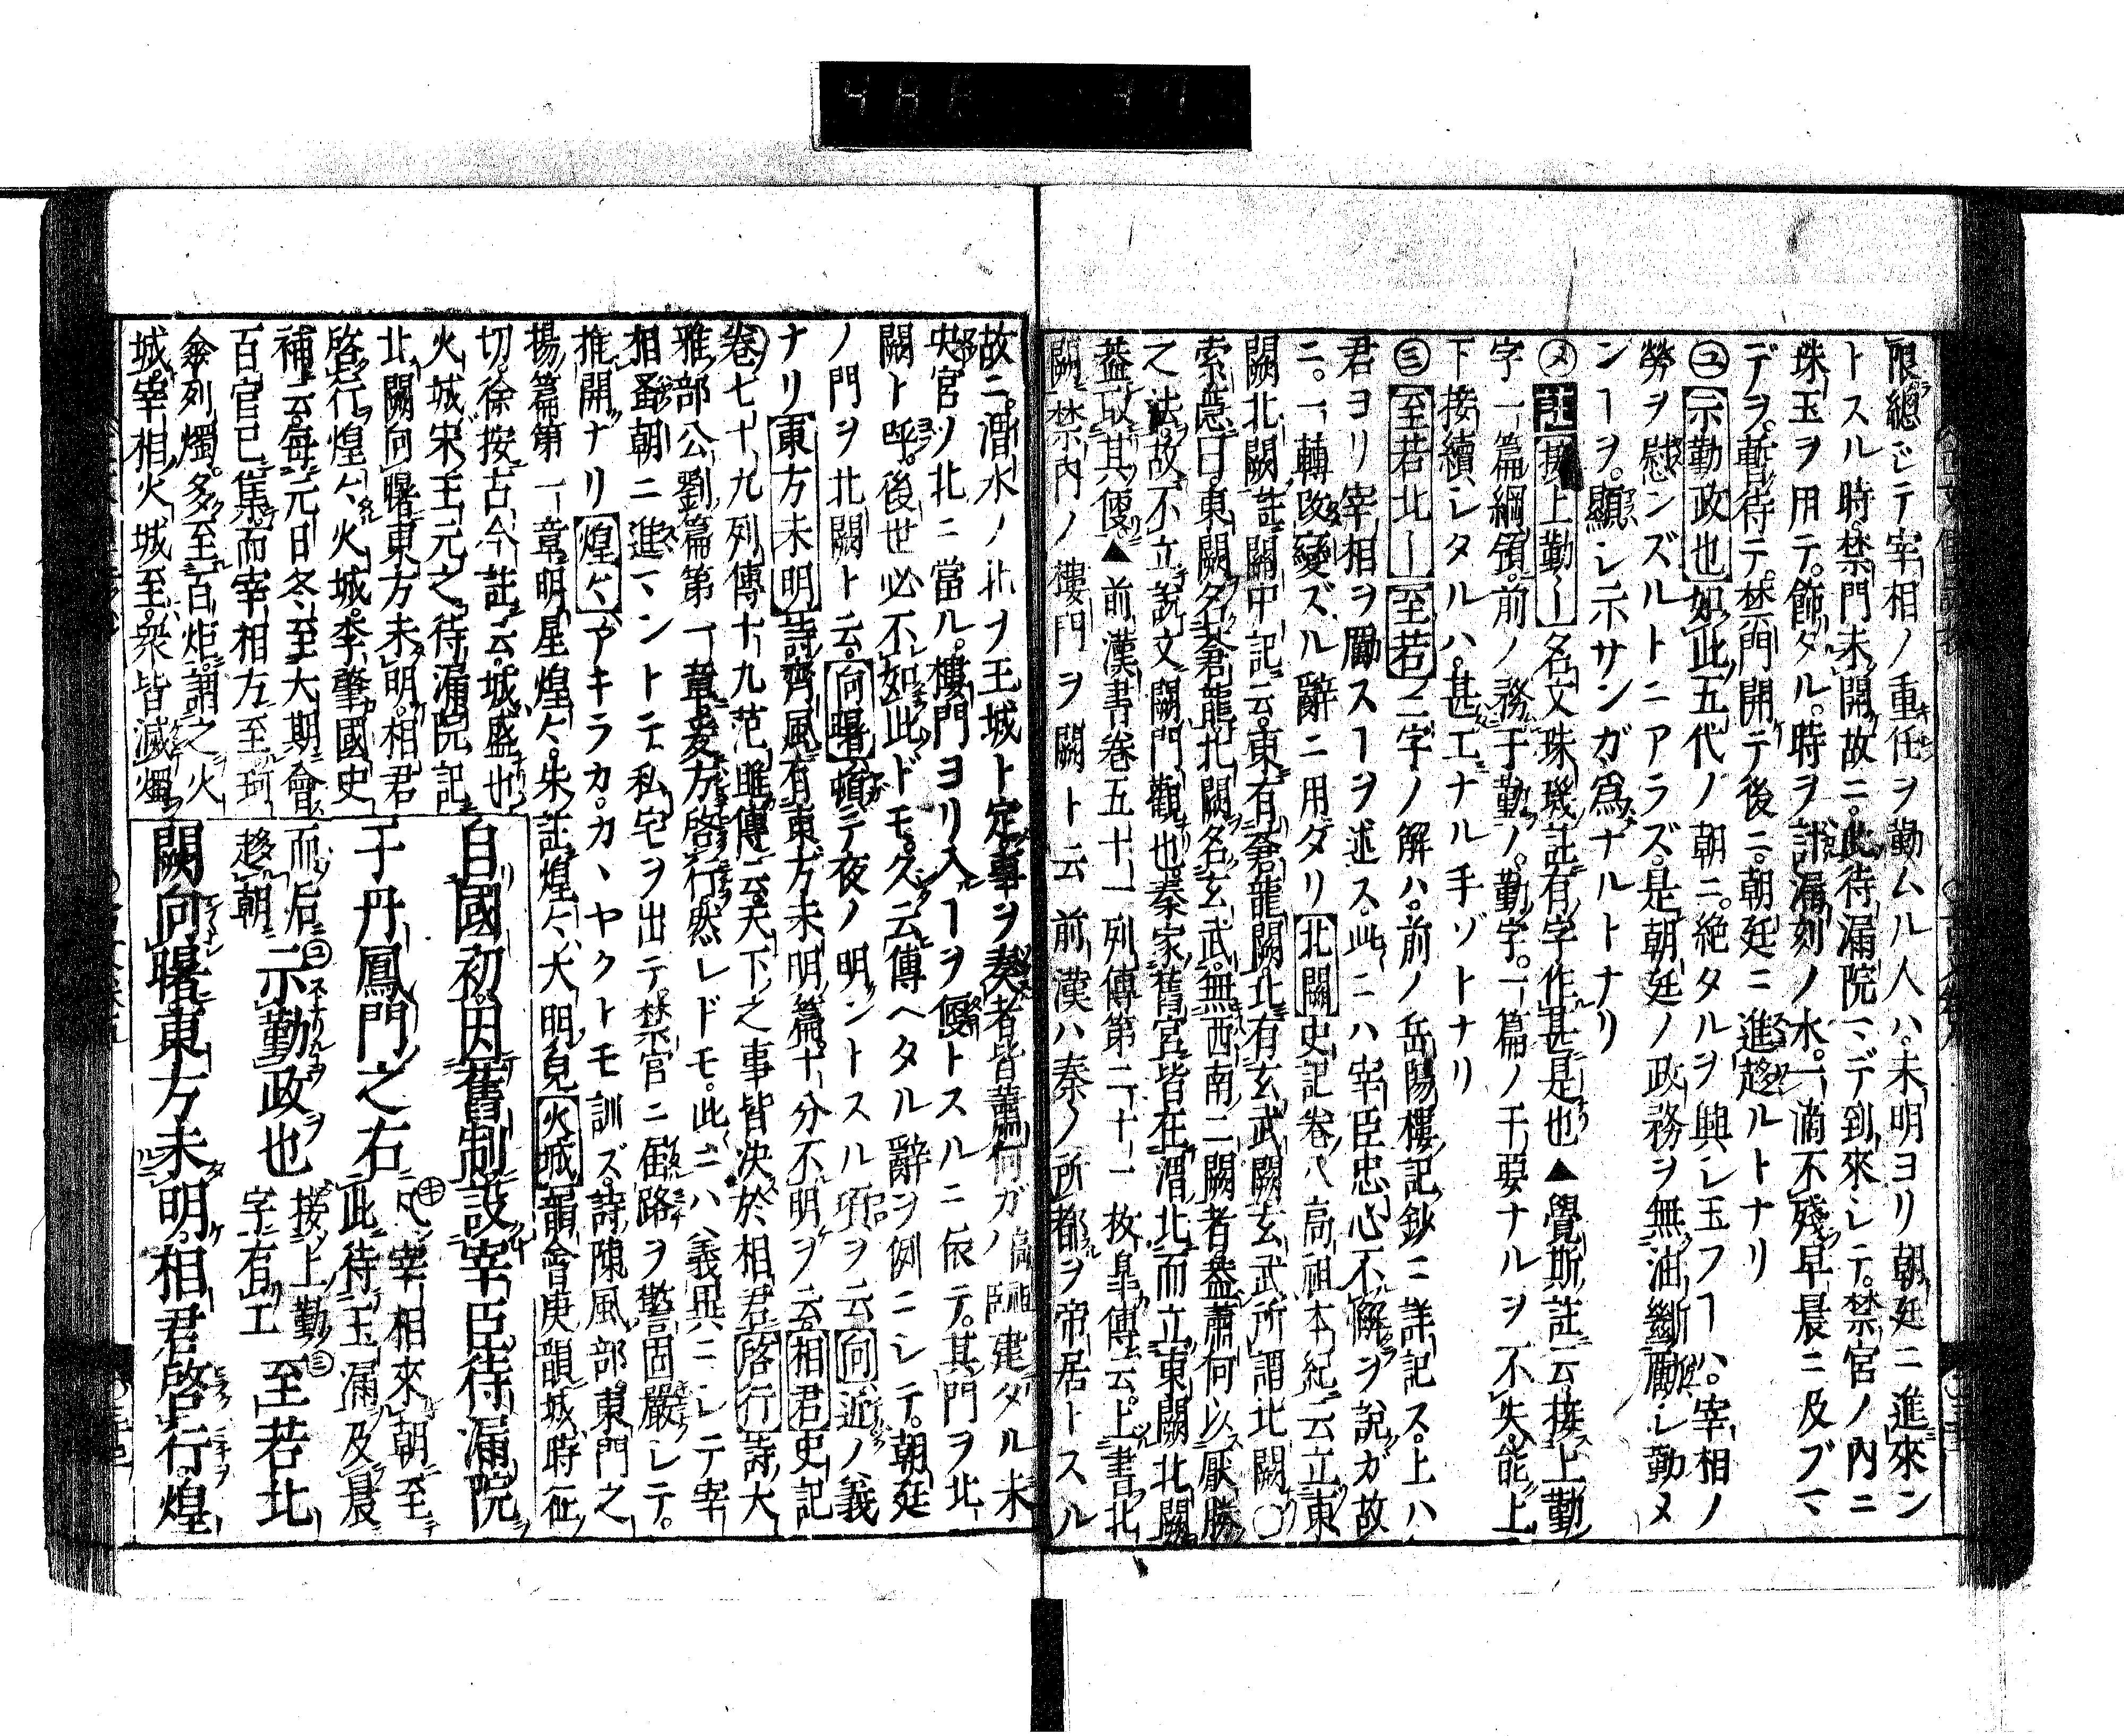 限總ジテ宰相ノ重任ヲ勤ムル人ハ未明ヨリ朝廷ニ進來ン
トスル時禁門未開故ニ此待漏院マデ到來シテ禁官ノ內ニ
珠玉ヲ用テ飾タル時ヲ計漏刻ノ水一滴不殘早晨ニ及ブマ
デヲ暫待テ禁門開テ後ニ朝廷ニ進趍ルトナリ
ユ示勤政也如此五代ノ朝ニ絶タルヲ興シ玉フヿハ宰相ノ
勞ヲ慰ンズルトニアラズ是朝廷ノ政務ヲ無油斷勵シ勤メ
ンヿヲ顯シ示サンガ爲ナルトナリ
メ註接上勤〡名文珠璣註有字作甚是也▲覺斯註云接上勤
字一篇綱領前ノ務于勤ノ勤字一篇ノ干要ナルヲ不失能上
下接續シタルハ甚工ナル手ゾトナリ
ミ至若北〡至若二字ノ解ハ前ノ岳陽樓記鈔ニ詳記ス上ハ
君ヨリ宰相ヲ勵スヿヲ述ス此ニハ宰臣忠心不懈ヲ說ガ故
ニ一轉改變ズル辭ニ用タリ北闕史記卷八高祖本紀云立東
闕北闕註關中記云東有蒼龍闕北有玄武闕玄武所謂北闕〇
索隱曰東闕名蒼龍北闕名玄武無西南二闕者蓋蕭何以厭勝
之法故不立說文闕門觀也秦家舊宮皆在渭北而立東闕北闕
蓋取其便▲前漢書卷五十一列傳第二十一枚皐傳云上書北
闕禁內ノ樓門ヲ闕ト云前漢ハ秦ノ所都ヲ帝居トスル
故ニ渭水ノ北ヲ王城ト定事ヲ奏者皆蕭何ガ建タル未
央官ノ北ニ當ル樓門ヨリ入ヿヲ便トスルニ依テ其門ヲ北
闕ト呼後世必不如此ドモ久云傳ヘタル辭ヲ例ニシテ朝廷
ノ門ヲ北闕ト云向曙頓テ夜ノ明ントスル頃ヲ云向近ノ義
ナリ東方未明詩齊風有東方未明篇十分不明ヲ云相君史記
卷七十九列傳十九范雎傳云天下之事皆決於相君啓行詩大
雅部公劉篇第一章爰方啓行然レドモ此ニハ義異ニシテ宰
相蚤朝ニ進マントテ私宅ヲ出テ禁官ニ徃路ヲ警固嚴シテ
推開ナリ煌々アキラカカヽヤクトモ訓ズ詩陳風部東門之
揚篇第一章明星煌々朱註煌々大明皃火城韻會庚韻城時征
切徐按古今註云城盛也
火城宋王元之待漏院記
北闕向曙東方未明相君
啓行煌々火城李肇國史
補云每元日冬至大期會
百官已集而宰相方至珂
傘列燭多至百炬謂之火
城宰相火城至衆皆滅燭
自國初因舊制設宰臣待漏院
于丹鳳門之右
凡宰相來朝至
此待玉漏及晨
而后
趍朝
示勤政也
接上勤
字有工
至若北
闕向曙東方未明相君啓行煌